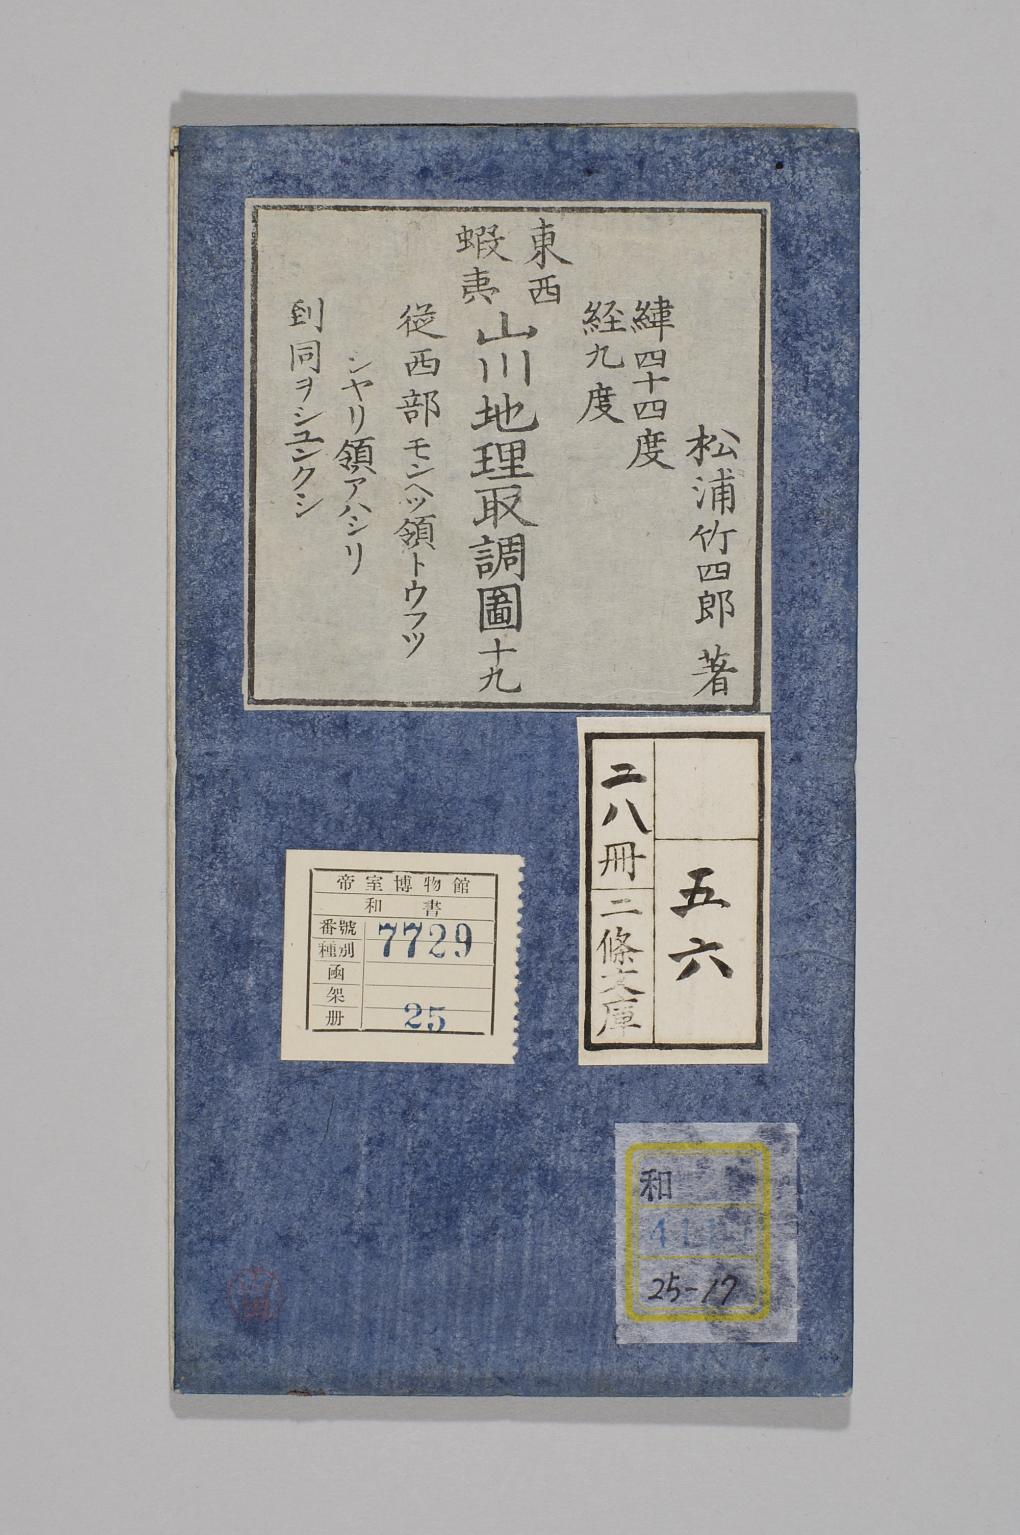 松浦竹四郎著
緯四十四度
経九度
東西
蝦夷
山川地理取調圖十九
従西部モンヘツ領トウフツ
シヤリ領アハシリ
到同ヲシユンクシ
五六
二八冊
二條文庫
帝室博物館
和書
番號 7729
種別
函
架
册 25
和
25-17